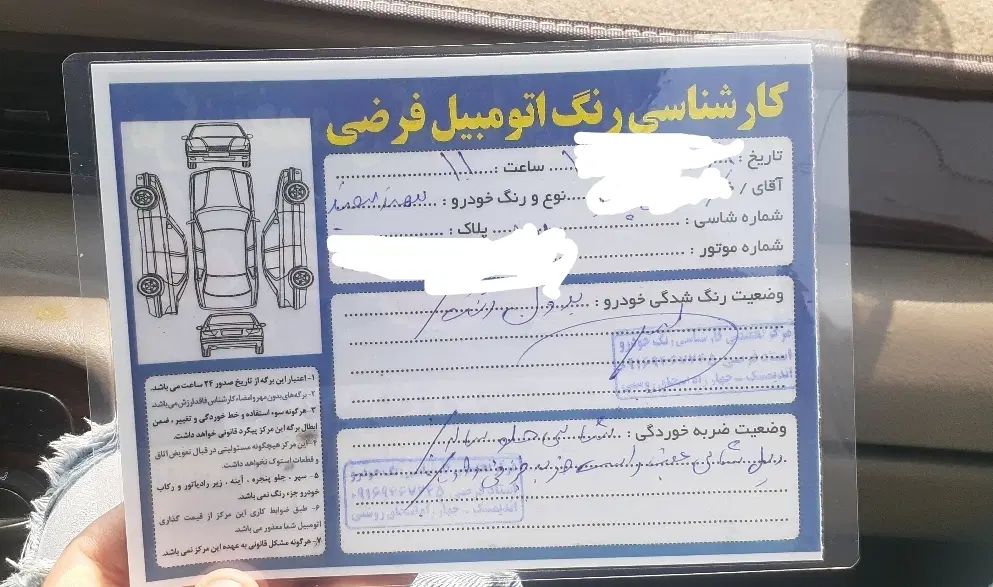 کارشناسی رنگ اتومبیل فرضی
تاریخ : ساعت : ۱۱
آقای / نوع و رنگ خودرو :
شماره شاسی : پلاک :
شماره موتور :
وضعیت رنگ شدگی خودرو : بدون رنگ
مرکز تخصصی کارشناسی رنگ خودرو
استاد فرضی ۰۹۱۶۹۴۶۷۲۲۵
اندیمشک - چهار راه استخر روسی
وضعیت ضربه خوردگی :
استاد فرضی ۰۹۱۶۹۴۶۷۲۲۵
اندیمشک - چهار راه استخر روسی
۱- اعتبار این برگه از تاریخ صدور ۲۴ ساعت می باشد.
۲- برگه های بدون مهر و امضاء کارشناس فاقد ارزش می باشد.
۳- هرگونه سوء استفاده و خط خوردگی و تغییر ، ضمن
ابطال برگه این مرکز پیگرد قانونی خواهد داشت.
۴- این مرکز هیچگونه مسئولیتی در قبال تعویض اتاق
و قطعات استوک نخواهد داشت.
۵- سپر ، جلو پنجره ، آینه ، زیر رادیاتور و رکاب
خودرو جزء رنگ نمی باشد.
۶- طبق ضوابط کاری این مرکز از قیمت گذاری
اتومبیل شما معذور می باشد.
۷- هرگونه مشکل قانونی به عهده این مرکز نمی باشد.